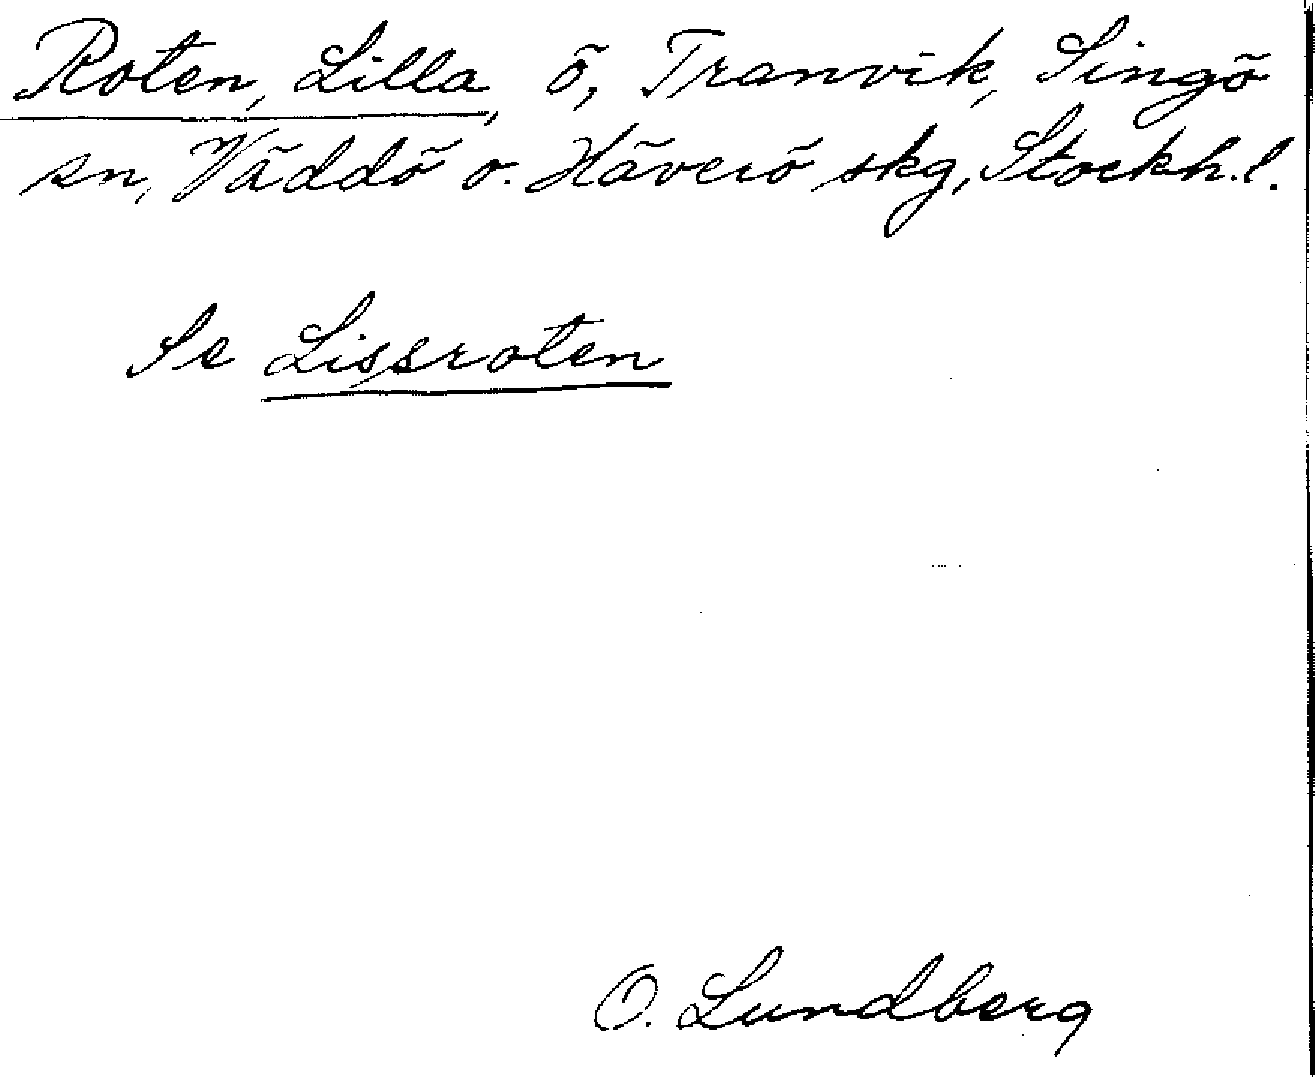 Roten, Lilla, ö, Tranvik, Singö
sn, Väddö o. Häverö skg, Stockh. l.
Se Lissroten
O. Lundberg